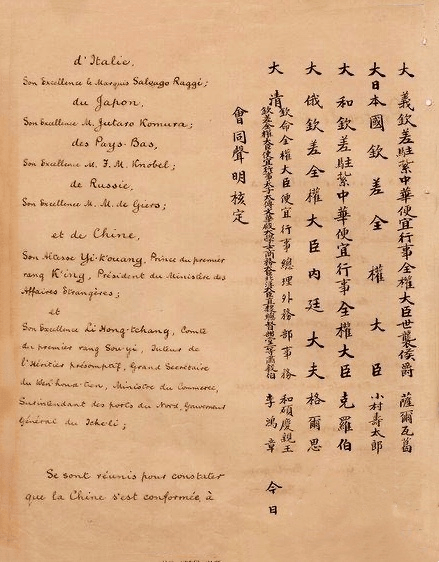 d'Italie,
Son Excellence le Marquis Salvago Raggi;
du Japon,
Son Excellence M. Jutaro Komura;
des Pays-Bas,
Son Excellence M. F. M. Knobel;
de Russie,
Son Excellence M. M. de Giers;
et de Chine,
Son Altesse Yi-K'ouang, Prince du premier
rang K'ing, Président du Ministère des
Affaires Etrangères;
et
Son Excellence Li Hong-tchang, Comte
du premier rang Sou-yi, Tuteur de
l'Héritier présomptif, Grand Secrétaire
du Wen-houa-tien, Ministre du Commerce,
Surintendant des ports du Nord, Gouverneur
Général du Tcheli;
Se sont réunis pour constater
que la Chine s'est conformée, à
大 義欽差駐紮中華便宜行事全權大臣世襲侯爵 薩爾瓦葛
大日本國欽差全權大臣 小村壽太郎
大 和欽差駐紮中華便宜行事全權大臣 克羅伯
大 俄欽差全權大臣內廷大夫 格爾思
大 清
欽命全權大臣便宜行事總理外務部事務 和碩慶親王
欽差全權大臣便宜行事太子太傅文華殿大學士商務大臣北洋大臣直隸總督部堂一等肅毅伯 李鴻章
今日
會同聲明核定